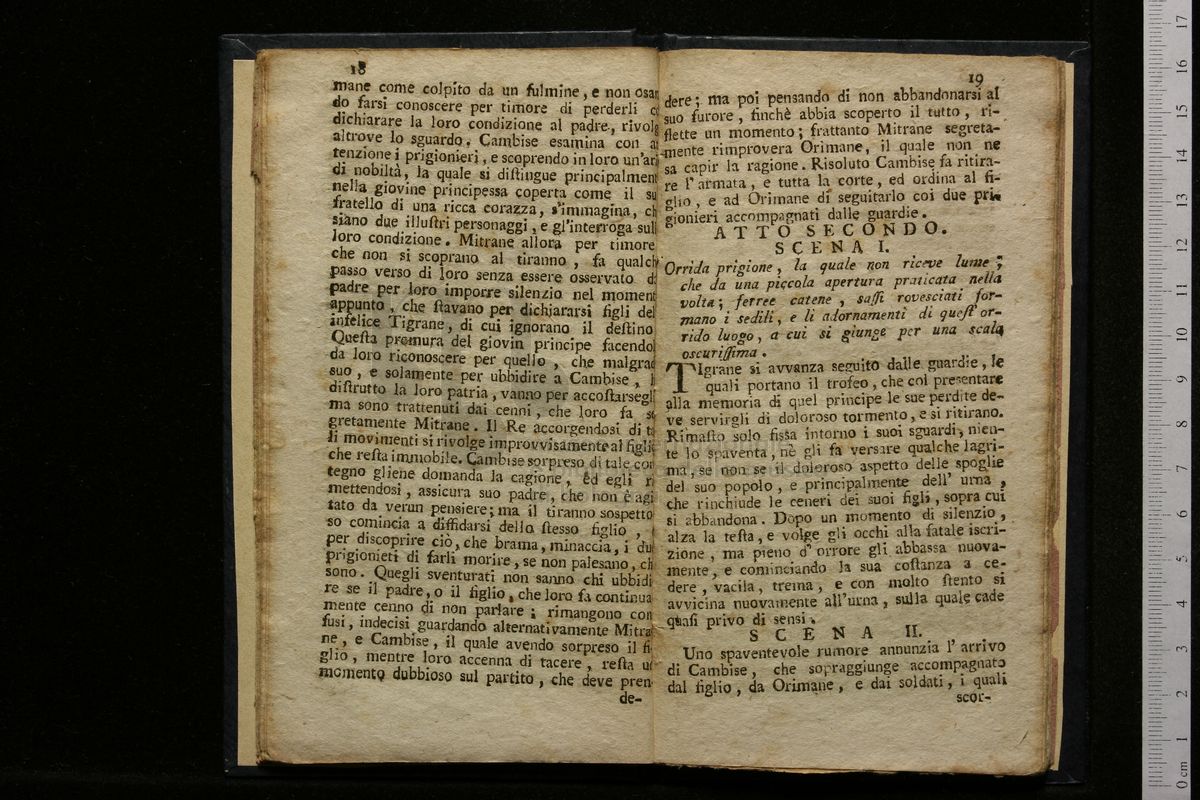 18
mane come colpito da un fulmine, e non osan
do farsi conoscere per timore di perderli c
dichiarare la loro condizione al padre, rivolg
altrove lo sguardo. Cambise esamina con a
tenzione i prigionieri, e scoprendo in loro un'ari
di nobiltà, la quale si diſtingue principalment
nella giovine principessa coperta come il su
fratello di una ricca corazza, s'immagina, ch
siano due illuſtri personaggi, e gl'interroga sull
loro condizione. Mitrane allora per timore
che non si scoprano al tiranno, fa qualch
passo verso di loro senza essere osservato d
padre per loro imporre silenzio nel moment
appunto, che ſtavano per dichiararsi figli del
infelice Tigrane, di cui ignorano il deſtino
Queſta premura del giovin principe facendol
da loro riconoscere per quello, che malgrad
suo, e solamente per ubbidire a Cambise,
diſtrutto la loro patria, vanno per accoſtarsegli
ma sono trattenuti dai cenni, che loro fa se
gretamente Mitrane. Il Re accorgendosi di ta
li movimenti si rivolge improvvisamente al figli
che reſta immobile. Cambise sorpreso di tale con
tegno gliene domanda la cagione, ed egli ri
mettendosi, assicura suo padre, che non è agi
tato da verun pensiere; ma il tiranno sospetto
so comincia a diffidarsi dello ſtesso figlio,
per discoprire ciò, che brama, minaccia, i du
prigionieti di farli morire, se non palesano, ch
sono. Quegli sventurati non sanno chi ubbidi
re se il padre, o il figlio, che loro fa continua
mente cenno di non parlare; rimangono con
fusi, indecisi guardando alternativamente Mitra
ne, e Cambise, il quale avendo sorpreso il fi
glio, mentre loro accenna di tacere, reſta u
momento dubbioso sul partito, che deve pren
de-
19
dere; ma poi pensando di non abbandonarsi al
suo furore, finchè abbia scoperto il tutto, ri-
flette un momento; frattanto Mitrane segreta-
mente rimprovera Orimane, il quale non ne
sa capir la ragione. Risoluto Cambise fa ritira-
re l'armata, e tutta la corte, ed ordina al fi-
glio, e ad Orimane di seguitarlo coi due pri-
gionieri accompagnati dalle guardie.
ATTO SECONDO.
SCENA I.
Orrida prigione, la quale non riceve lume;
che da una piccola apertura praticata nella
volta; ferree catene, saſſi rovesciati for-
mano i sedili, e li adornamenti di queſt' or-
rido luogo, a cui si giunge per una scala
oscuriſſima.
TIgrane si avvanza seguito dalle guardie, le
quali portano il trofeo, che col presentare
alla memoria di quel principe le sue perdite de-
ve servirgli di doloroso tormento, e si ritirano.
Rimaſto solo fissa intorno i suoi sguardi, nien-
te lo spaventa, nè gli fa versare qualche lagri-
ma, se non se il doloroso aspetto delle spoglie
del suo popolo, e principalmente dell' urna,
che rinchiude le ceneri dei suoi figli, sopra cui
si abbandona. Dopo un momento di silenzio,
alza la teſta, e volge gli occhi alla fatale iscri-
zione, ma pieno d' orrore gli abbassa nuova-
mente, e cominciando la sua coſtanza a ce-
dere, vacila, trema, e con molto ſtento si
avvicina nuovamente all'urna, sulla quale cade
quaſi privo di sensi.
SCENA II.
Uno spaventevole rumore annunzia l' arrivo
di Cambise, che sopraggiunge accompagnato
dal figlio, da Orimane, e dai soldati, i quali
scor-
17
16
15
14
13
12
11
10
9
8
7
6
5
4
3
2
1
0 cm